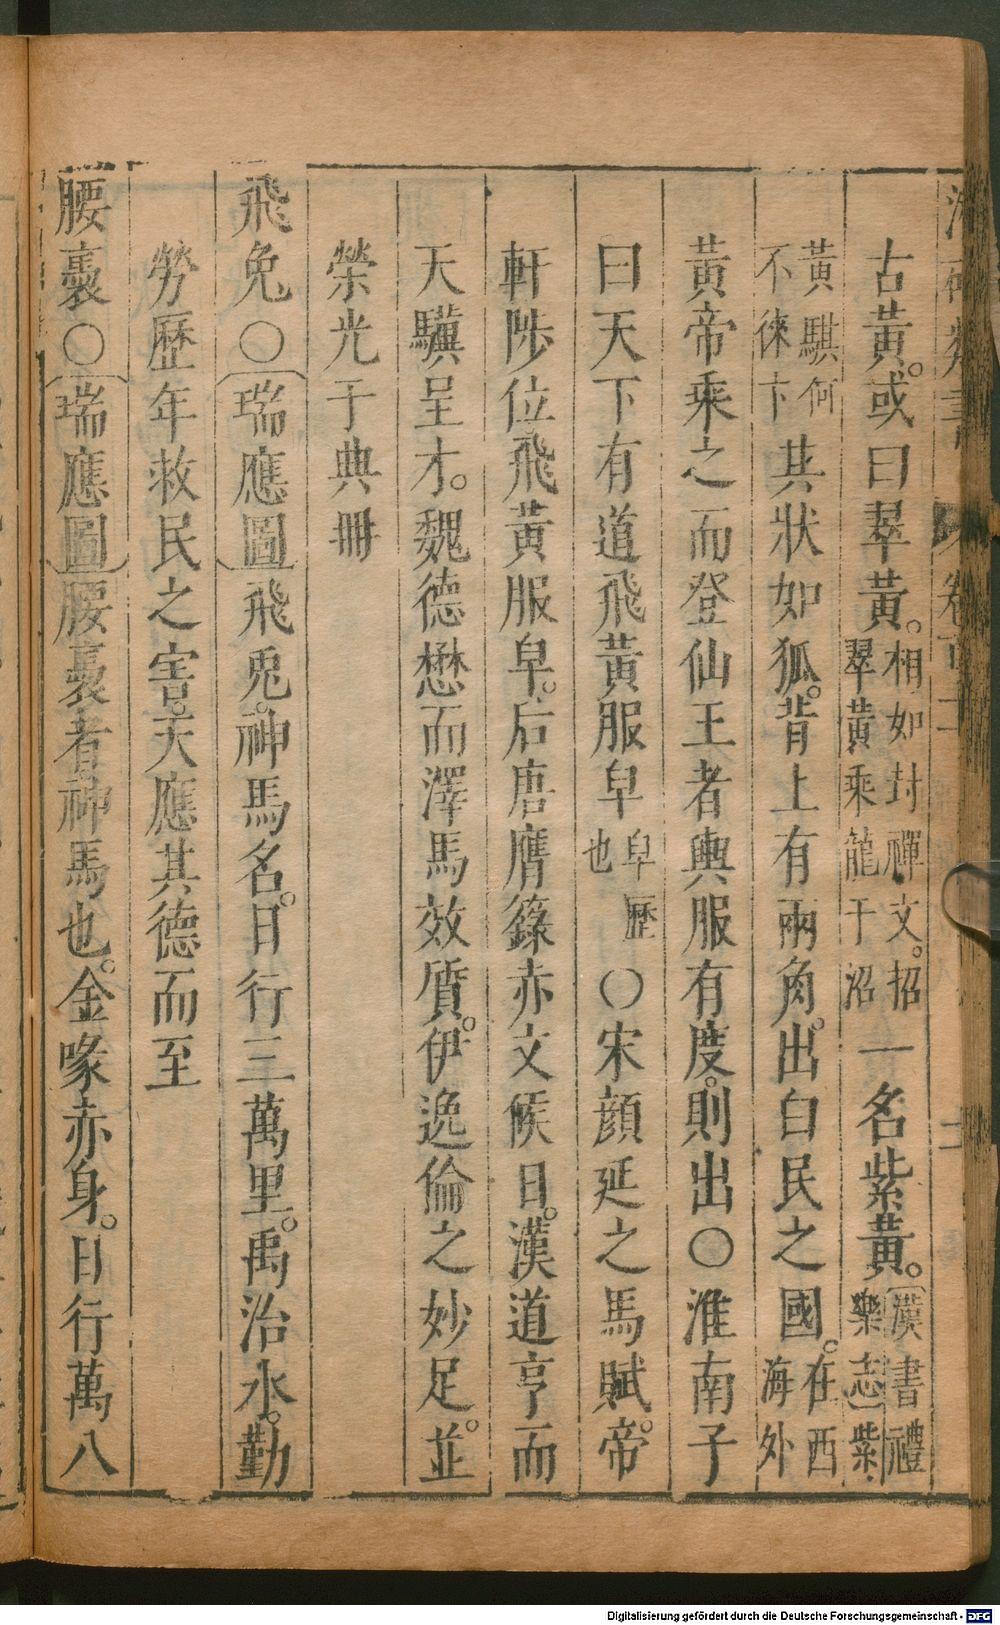 古黃。或曰翠黃。相如封禪文。招翠黃乘龍于沼一名紫黃。漢書禮樂志紫
黃騏何不徠下其狀如狐。背上有兩角。出白民之國。在西海外
黃帝乘之而登仙王者輿服有度。則出〇淮南子
曰天下有道飛黃服皁皁歷也〇宋顏延之馬賦。帝
軒陟位飛黃服皁。后唐膺籙赤文候日。漢道亨而
天驥呈才。魏德懋而澤馬效質。伊逸倫之妙足。並
榮光于典冊
飛兔〇瑞應圖飛兎。神馬名。日行三萬里。禹治水。勤
勞歷年救民之害。天應其德而至
腰褭〇瑞應圖腰褭者神馬也。金喙赤身。日行萬八
卷百
二
Digitalisierung gefördert durch die Deutsche Forschungsgemeinschaft - DFG